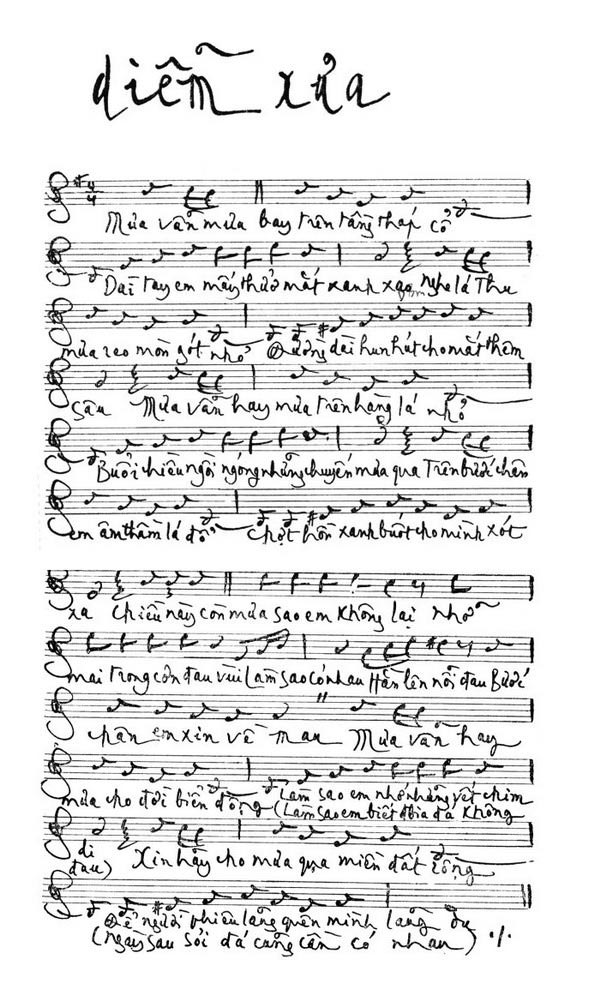 diễm xưa
4 4
Mưa vẫn mưa bay trên tầng tháp cổ
Dài tay em mấy thuở mắt xanh xao Nghe lá Thu
mưa reo mòn gót nhỏ Đường dài hun hút cho mắt thêm
sâu Mưa vẫn hay mưa trên hàng lá nhỏ
Buổi chiều ngồi ngóng những chuyến mưa qua Trên bước chân
em âm thầm lá đổ Chợt hồn xanh buốt cho mình xót
xa Chiều này còn mưa sao em không lại nhớ
mai trong cơn đau vùi Làm sao có nhau Hằn lên nỗi đau Bước
chân em xin về mau Mưa vẫn hay
mưa cho đời biển động Làm sao em nhớ những vết chim
(Làm sao em biết bia đá không
di Xin hãy cho mưa qua miền đất rộng
đau)
Để người phiêu lãng quên mình lãng du
(ngày sau sỏi đá cũng cần có nhau)